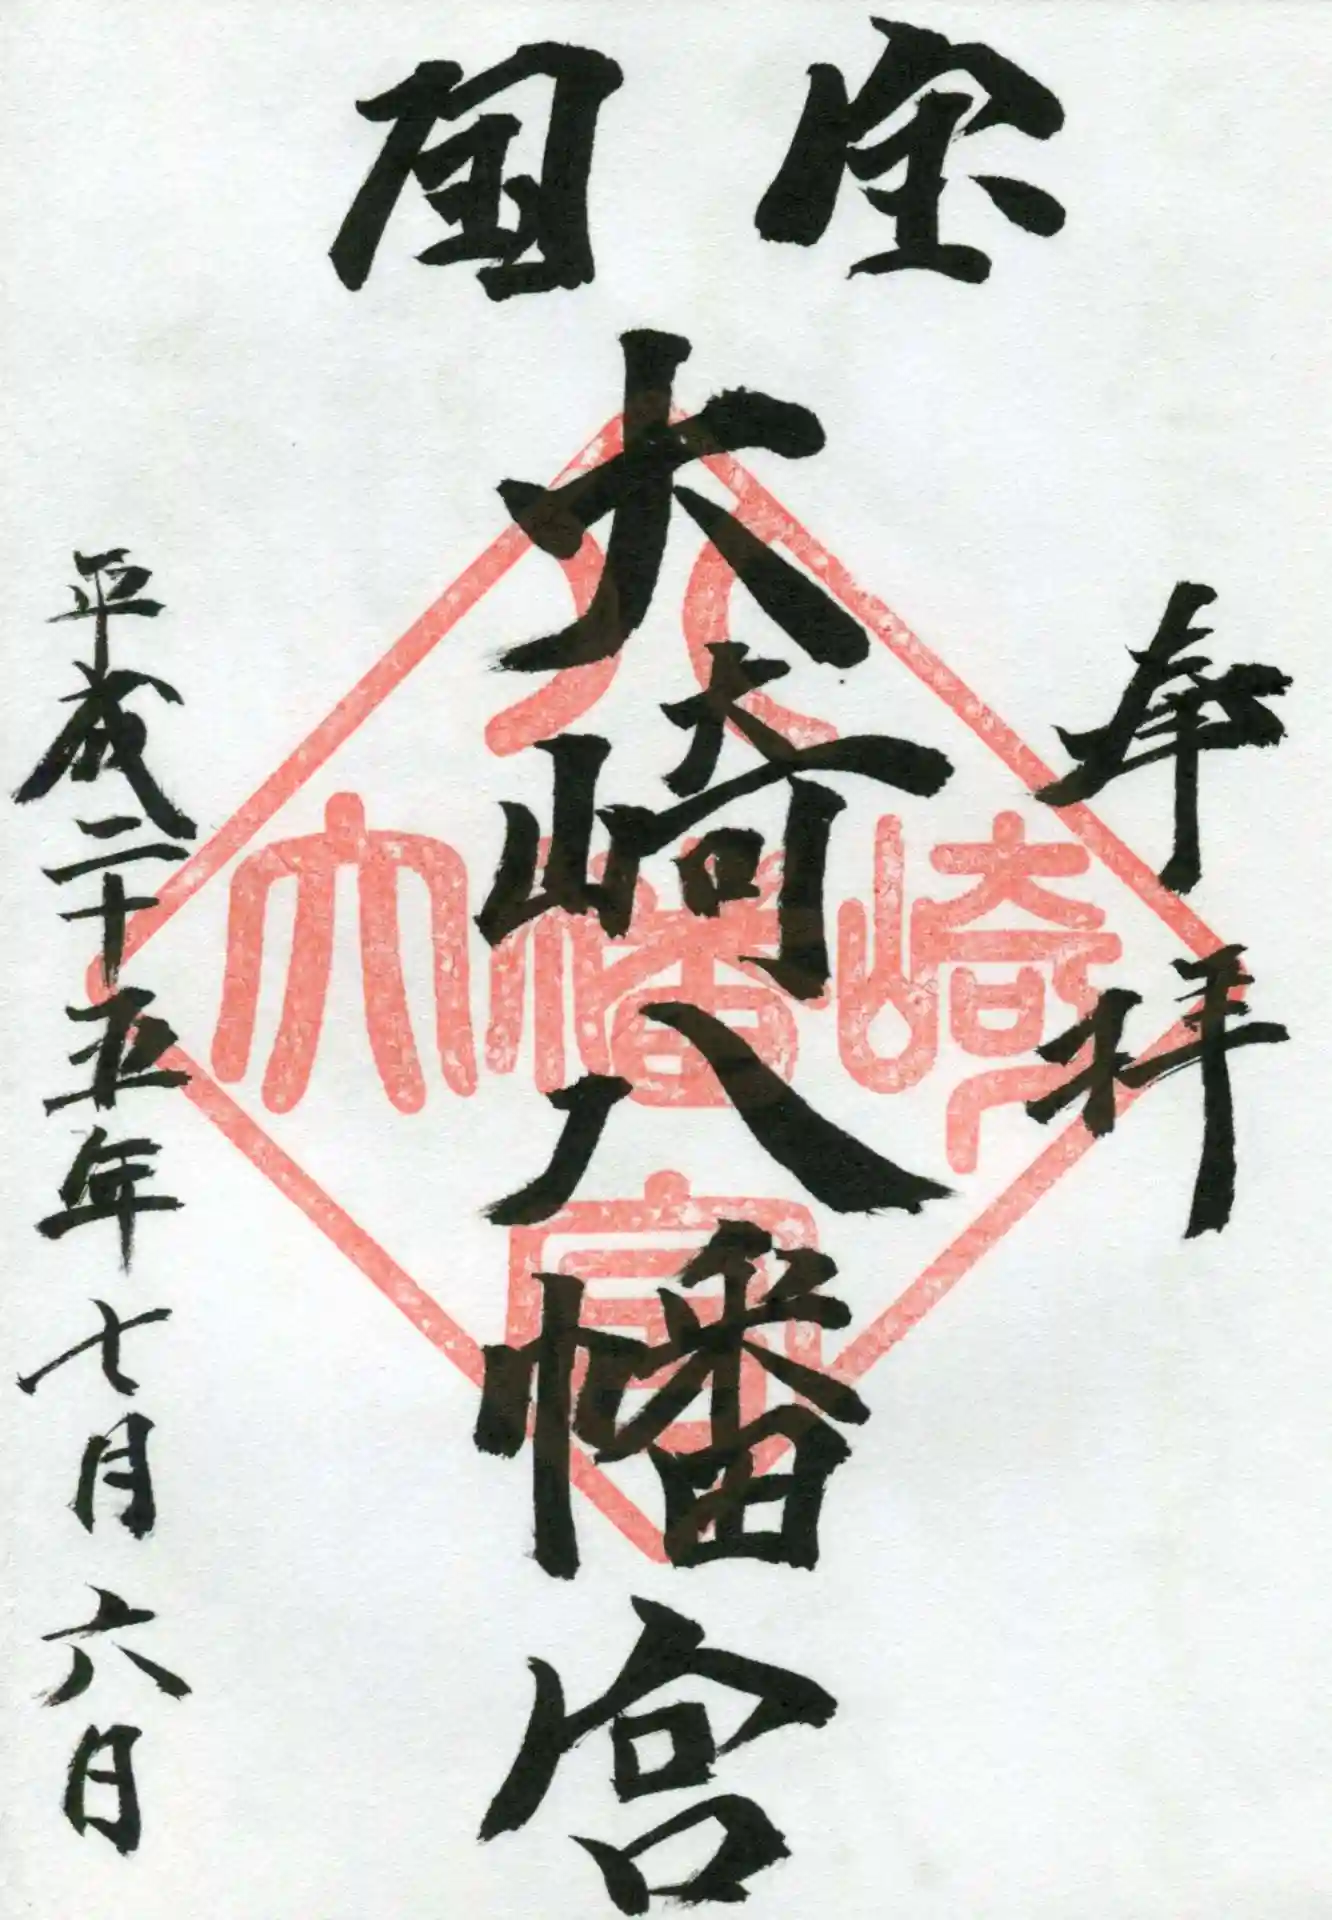 国宝
奉拝
大崎八幡宮
平成二十五年七月六日
大崎八幡宮